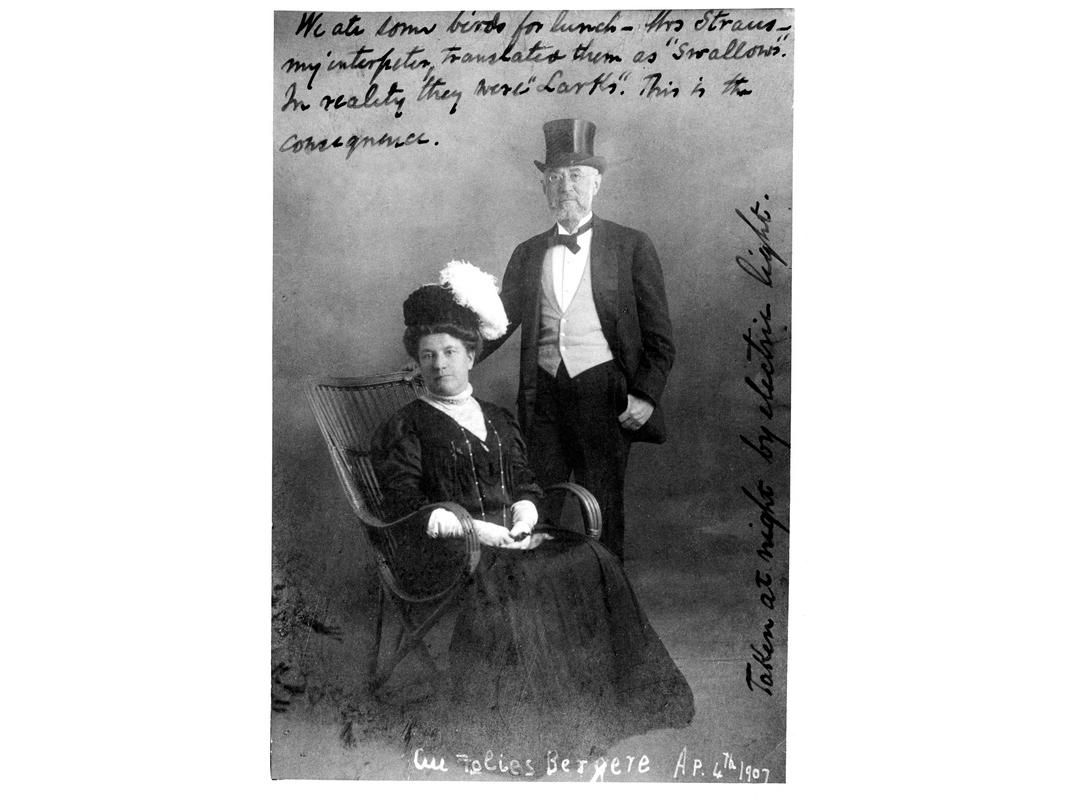 We ate some birds for lunch – Mrs Straus –
my interpeter, translated them as "Swallows".
In reality they were "Larks". This is the
consequence.
Taken at night by electric light.
Au Folies Bergere Ap. 4th 1907